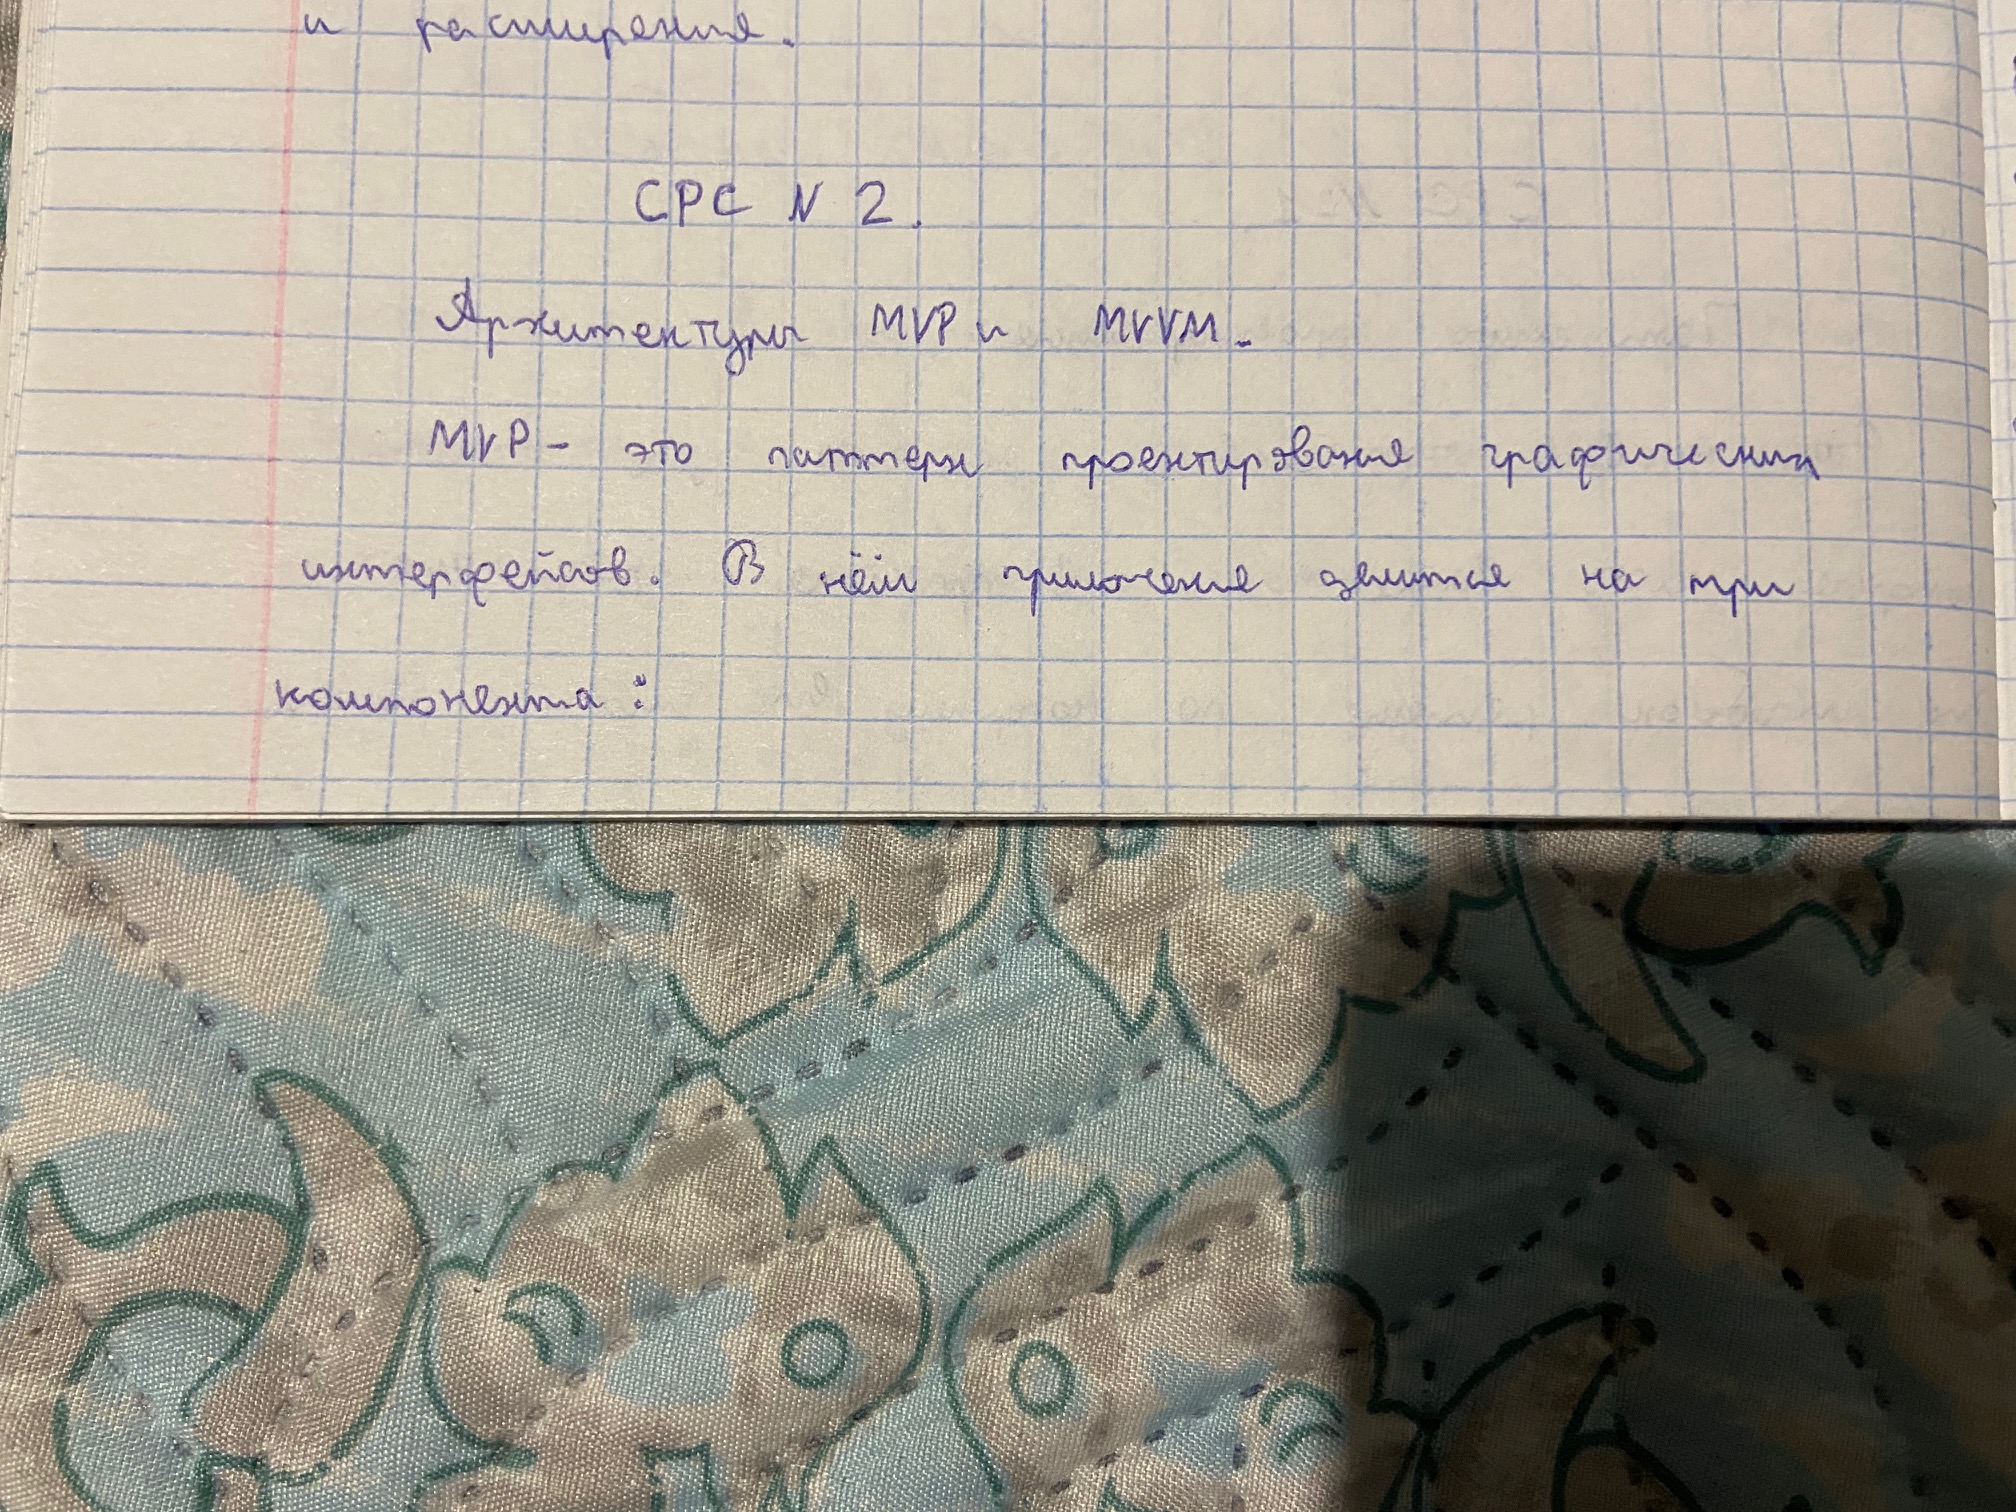 и расширения.
СРС N 2.
Архитектуры MVP и MVVM.
MVP - это паттерн проектирования графических
интерфейсов. В нём приложение делится на три
компонента: